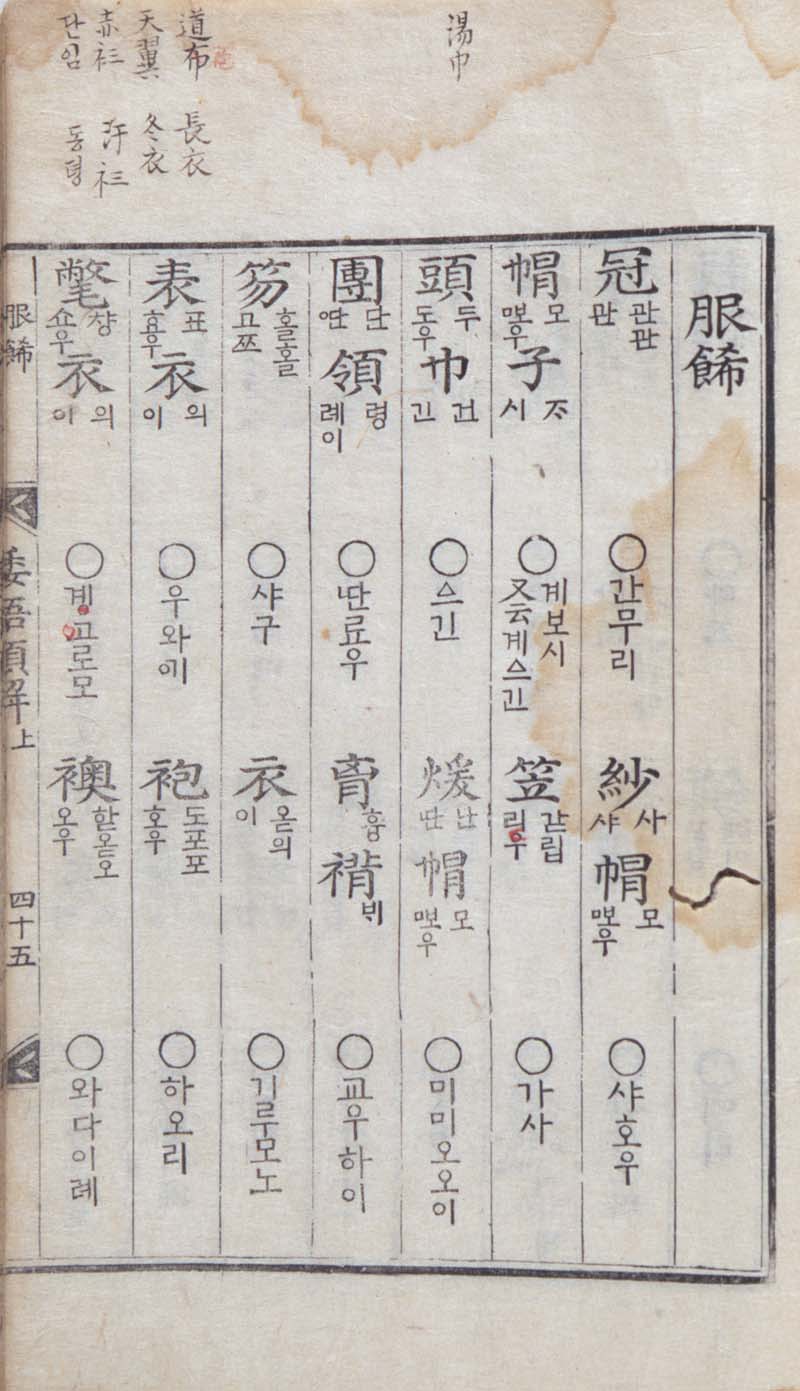 湯巾
道布 長衣
天翼 冬衣
赤衫 汗衫
단임 동령
服餙
冠 관관 관 ○간무리
紗 사 샤 帽 모 만보우 ○샤호우
帽 모 子 시 ○계보시 又云계스긴
笠 갇립 리우 ○가사
頭 두 도우 巾 건 긴 ○스긴
煖 난 帽 모 ○미미오오이
團 단 領 령 례이 ○딴료우
膏 䙝 ○교우하이
笏 홀홀 고쯔 ○샤구
衣 옫의 이 ○기루모노
表 표 효우 衣 의 이 ○우와예
袍 도포포 호우 ○하오리
氅 챵 쇼우 衣 의 이 ○겡교로모
襖 핟옫오 오우 ○와다이례
服餙
倭語類解 上
四十五